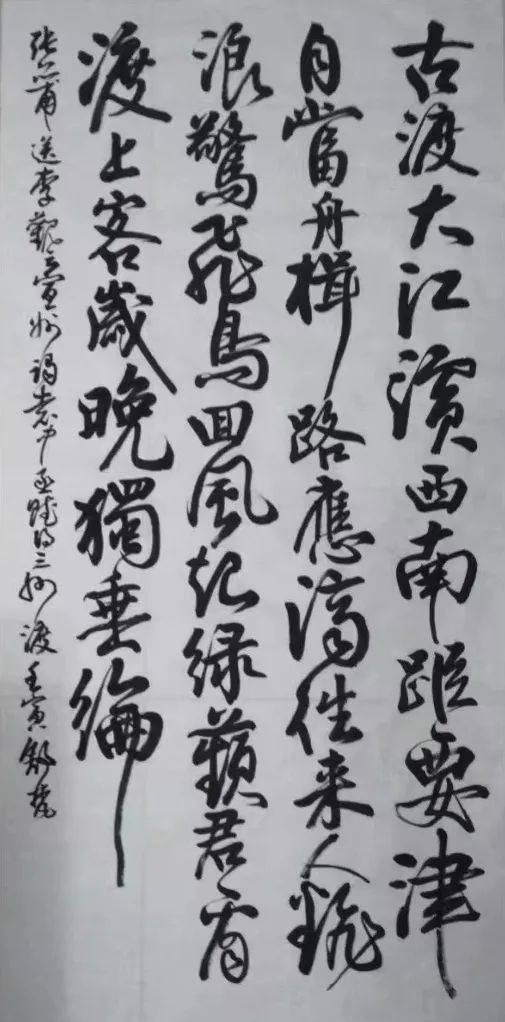 古渡大江濱西南距要津
自當舟楫路應濟往来人翻
浪驚飛鳥回風起緑蘋君看
渡上客歲晚獨垂綸
張眾甫送李觀之宣州謁袁中丞賦得三州渡壬寅